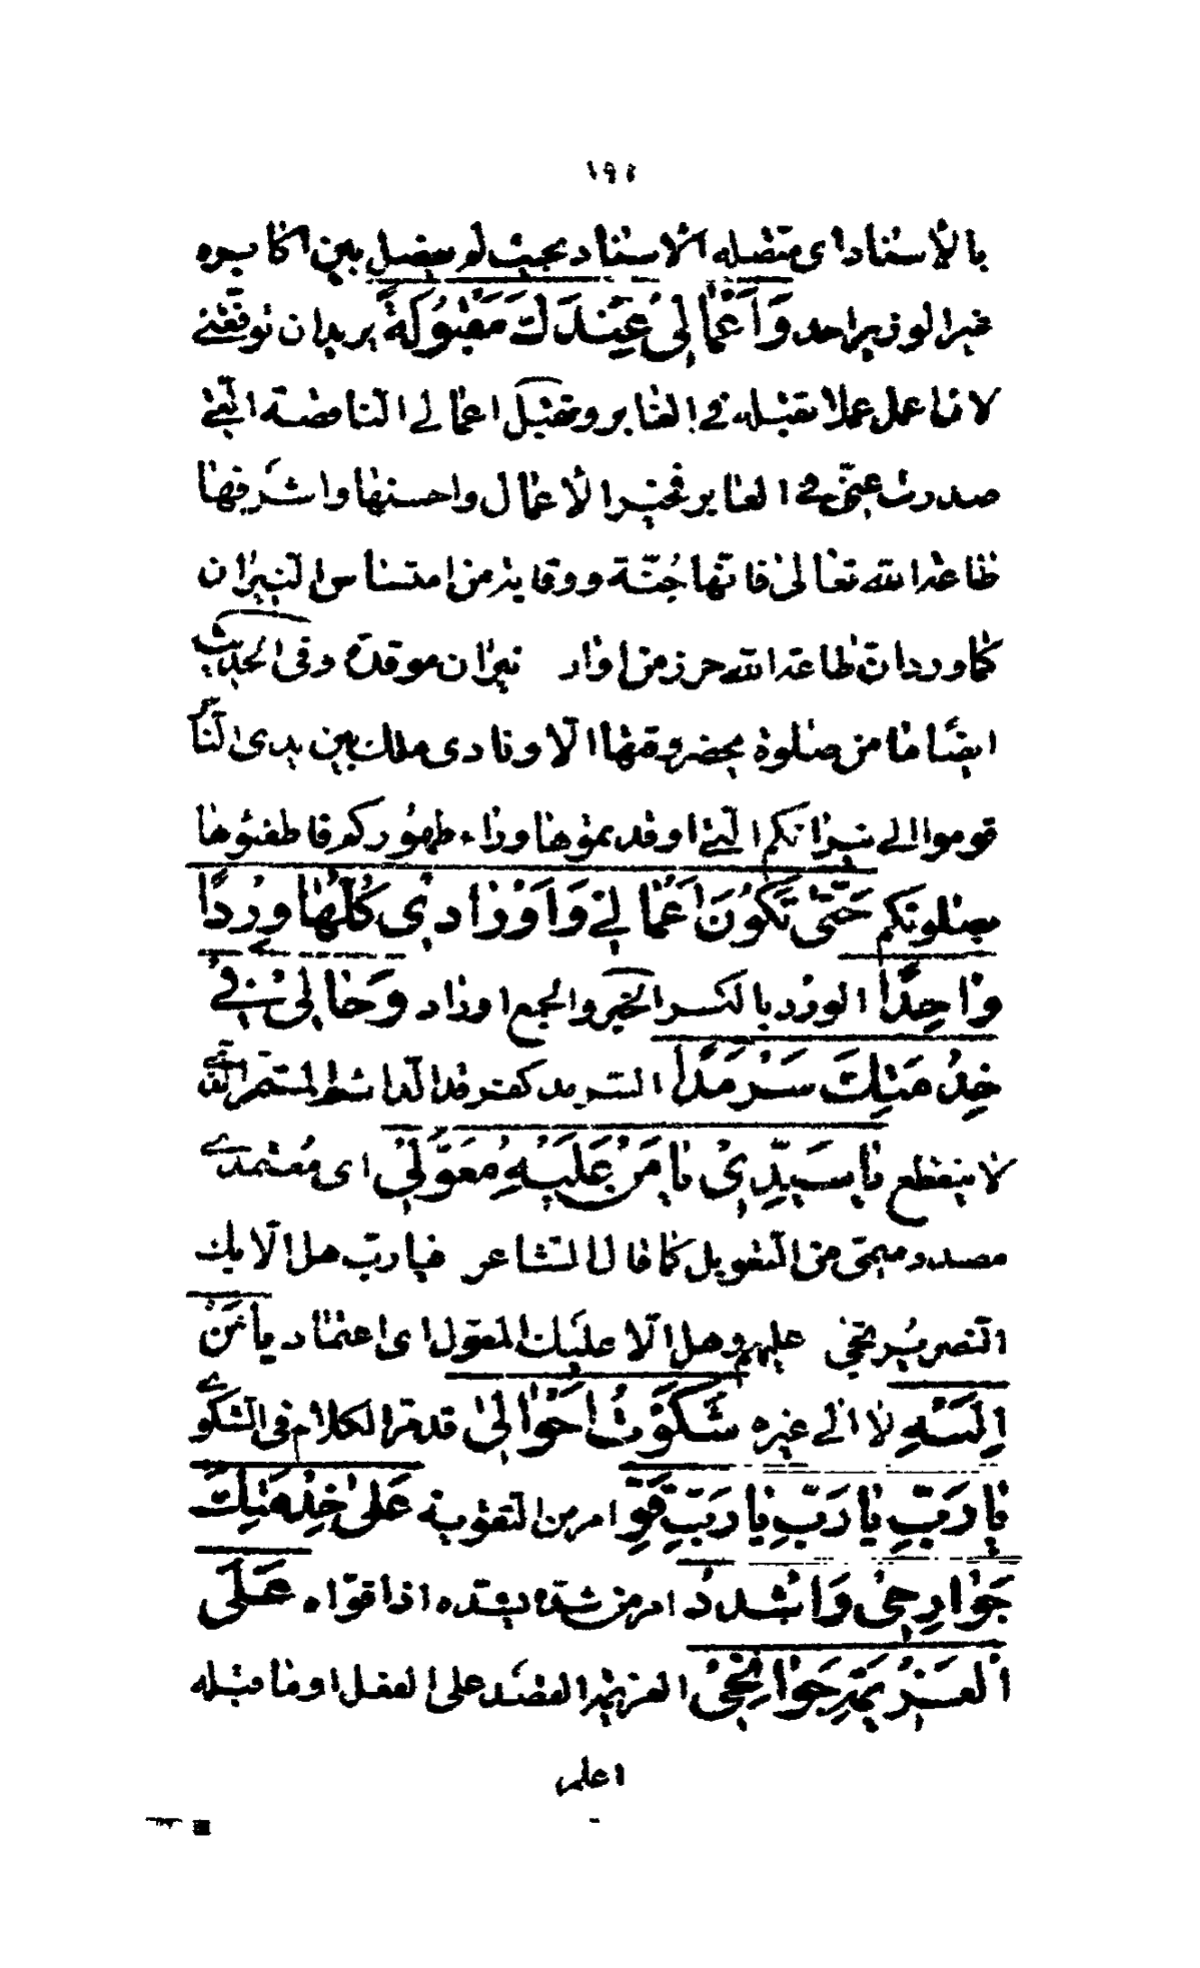 بالأستاد اى متصله الاسناد بحيث لو بفصل بين اكابره
غير الوزير احد وَاَعْمٰالى عِنْدَكَ مَقْبُولَةً يريدان توفّقنى
لان اعمل عملا تقبله فى الغابر وتقبل اعمالى الناقصة الّتى
صدرت عنّى فى الغابر فخير الأعمال واحسنها واشرفها
طاعة الله تعالى فانّها جُنّة ووقاية من امتساس النيران
كما وردان طاعة الله حرز من اوار نيران موقدة وفى الحديث
ايضًا ما من صلوة يحضر وقتها الّا ونادى ملك بين يدى النّاس
قوموا الى نيرانكم الّتى اوقدتموها وراء ظهوركم فاطفئوها
بصلوتكم حَتّىٰ تَكُونَ اَعْمٰالى وَاَوْرٰادى كُلُّهٰا وِرْدًا
وٰاحِدًا الورد بالكسر الخير والجمع اوراد وَحٰالى فى
خِدْمَتِكَ سَرْمَدًا السرمد كفرقد الدائم المستمر الّذى
لا ينقطع يٰا سَيِّدى يٰا مَنْ عَلَيْهِ مُعَوَّلى اى معتمدى
مصدر ميمى من التعويل كما قال الشاعر فيا ربّ هل الّا بك
النصر يُرتجى عليهم وهل الّا عليك المعوّل اى اعتماد يٰا مَنْ
اِلَيْهِ لا الى غيره شَكَوْتُ اَحْوٰالى قد مرّ الكلام فى الشكوى
يٰا رَبِّ يٰا رَبِّ يٰا رَبِّ قَوِّ امر من التقوية عَلىٰ خِدْمَتِكَ
جَوٰارِحى وَاشْدُدْ امر من شدّه يشدّه اذا قوّاه عَلَى
الْعَزيمَةِ جَوٰانِحى العزيمة القصد على الفعل او ما قبله
اعلم